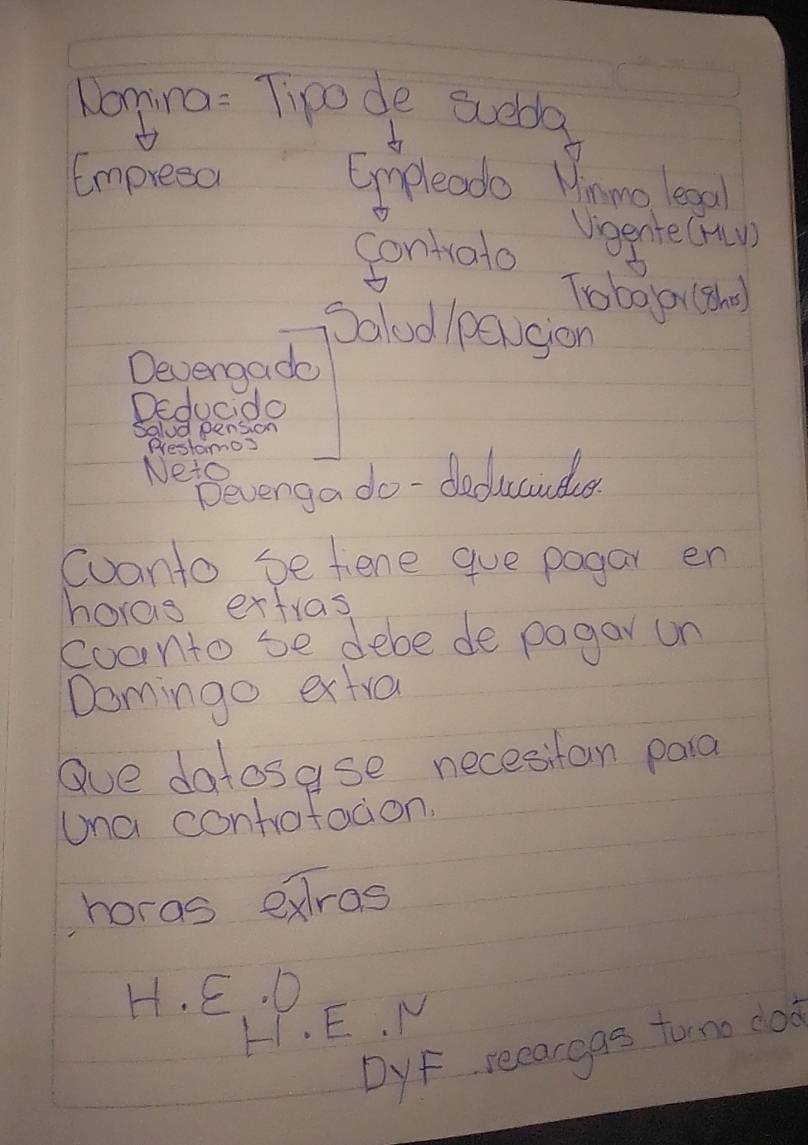 Nomina = Tipo de sueldo
Empresa Empleado Minmo legal
Vigente (MLV)
Contrato
Trabajar (8hrs)
Salud/pension
Devengado
Deducido
Salud pension
Prestamos
Neto
Devengado -
Cuanto se tiene que pagar en
horas extras
Cuanto se debe de pagar un
Domingo extra
Que datos se necesitan para
Una contratacion.
horas extras
H.E.D
H.E.N
DyF recargas turno